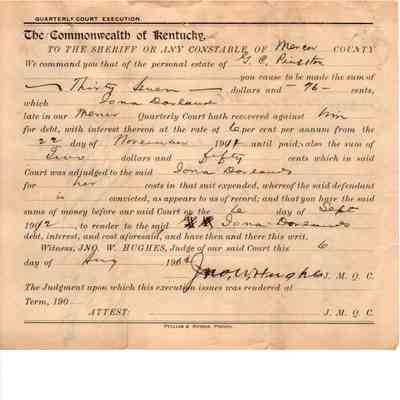 QUARTERLY COURT EXECUTION.
The Commonwealth of Kentucky.
TO THE SHERIFF OR ANY CONSTABLE OF Mercer COUNTY
We command you that of the personal estate of G. C.
you cause to be made the sum of
Thirty Seven dollars and -76- cents,
which Iona Dorland
late in our Mercer Quarterly Court hath recovered against him
for debt, with interest thereon at the rate of 6 per cent per annum from the
22 day of November 1901 until paid; also the sum of
Five dollars and fifty cents which in said
Court was adjudged to the said Iona Dorland
for her costs in that suit expended, whereof the said defendant
is convicted, as appears to us of record; and that you have the said
sums of money before our said Court on the 6 day of Sept
1902, to render to the said Iona Dorland
debt, interest, and cost aforesaid, and have then and there this writ.
Witness, JNO. W. HUGHES, Judge of our said Court this 6
day of Aug 190
Jno. W. Hughes J. M. Q. C.
The Judgment upon which this execution issues was rendered at
Term, 190
ATTEST: J. M. Q. C.